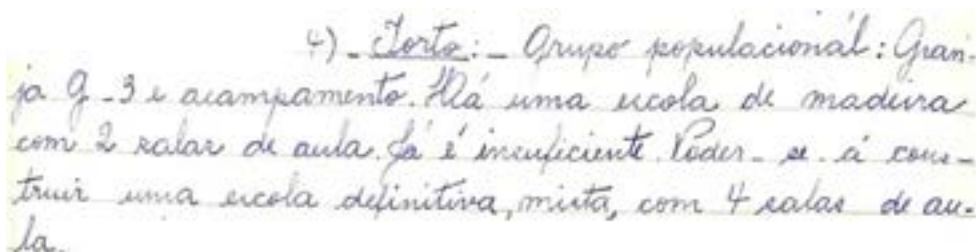 4)_ Torto:_ Grupo populacional: Gran-
ja G_3 e acampamento. Há uma escola de madeira
com 2 salas de aula. Já é insuficiente. Poder-se-á cons-
truir uma escola definitiva, mista, com 4 salas de au-
la.